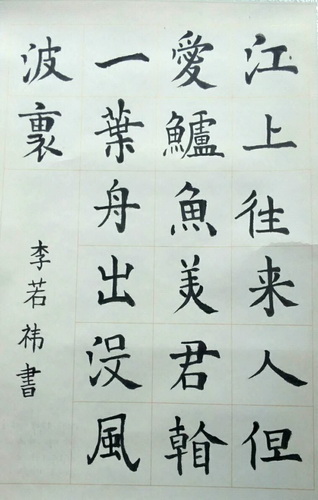 江上往来人但
愛鱸魚美君
一葉舟出没風
波裏
李若祎書